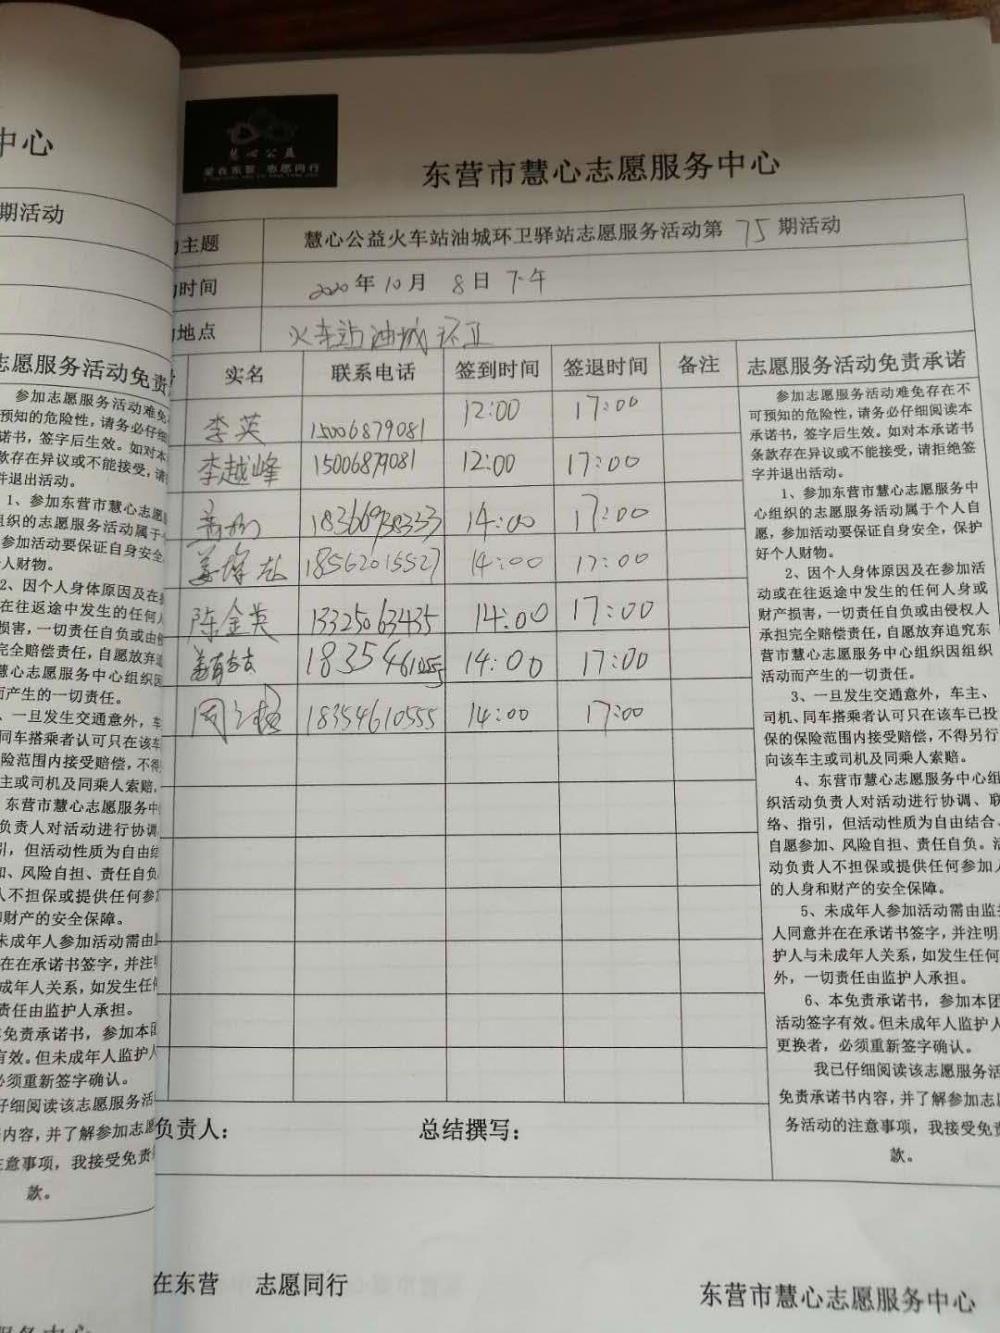 中心
期活动
志愿服务活动免责
参加志愿服务活动难免
预知的危险性，请务必仔细
诺书，签字后生效。如对本
款存在异议或不能接受，请
并退出活动。
1、参加东营市慧心志愿
组织的志愿服务活动属于个
参加活动要保证自身安全
人财物。
2、因个人身体原因及在参
或在往返途中发生的任何人
损害，一切责任自负或由侵
完全赔偿责任，自愿放弃追
慧心志愿服务中心组织因
而产生的一切责任。
、一旦发生交通意外，车
同车搭乘者认可只在该车
险范围内接受赔偿，不得
主或司机及同乘人索赔，
东营市慧心志愿服务中
负责人对活动进行协调
引，但活动性质为自由结
加、风险自担、责任自负
人不担保或提供任何参
财产的安全保障。
未成年人参加活动需由
在在承诺书签字，并注
成年人关系，如发生任
责任由监护人承担。
免责承诺书，参加本团
有效。但未成年人监护人
必须重新签字确认。
仔细阅读该志愿服务活
内容，并了解参加志愿
注意事项，我接受免责
款。
慧心公益
爱在东营 志愿同行
东营市慧心志愿服务中心
主题 慧心公益火车站油城环卫驿站志愿服务活动第 75 期活动
时间 2020年10月8日下午
地点 火车站油城环卫
实名 联系电话 签到时间 签退时间 备注 志愿服务活动免责承诺
李英 15006879081 12:00 17:00
李越峰 15006879081 12:00 17:00
14:00 17:00
18562015527 14:00 17:00
陈金英 13325063435 14:00 17:00
14:00 17:00
18354610555 14:00 17:00
参加志愿服务活动难免存在不
可预知的危险性，请务必仔细阅读本
承诺书，签字后生效。如对本承诺书
条款存在异议或不能接受，请拒绝签
字并退出活动。
1、参加东营市慧心志愿服务中
心组织的志愿服务活动属于个人自
愿，参加活动要保证自身安全，保护
好个人财物。
2、因个人身体原因及在参加活
动或在往返途中发生的任何人身或
财产损害，一切责任自负或由侵权人
承担完全赔偿责任，自愿放弃追究东
营市慧心志愿服务中心组织因组织
活动而产生的一切责任。
3、一旦发生交通意外，车主、
司机、同车搭乘者认可只在该车已投
保的保险范围内接受赔偿，不得另行
向该车主或司机及同乘人索赔。
4、东营市慧心志愿服务中心组
织活动负责人对活动进行协调、联
络、指引，但活动性质为自由结合、
自愿参加、风险自担、责任自负。活
动负责人不担保或提供任何参加人
的人身和财产的安全保障。
5、未成年人参加活动需由监
人同意并在在承诺书签字，并注明
护人与未成年人关系，如发生任何
外，一切责任由监护人承担。
6、本免责承诺书，参加本团
活动签字有效。但未成年人监护人
更换者，必须重新签字确认。
我已仔细阅读该志愿服务活
免责承诺书内容，并了解参加志愿
务活动的注意事项，我接受免责
款。
负责人： 总结撰写：
在东营 志愿同行
东营市慧心志愿服务中心